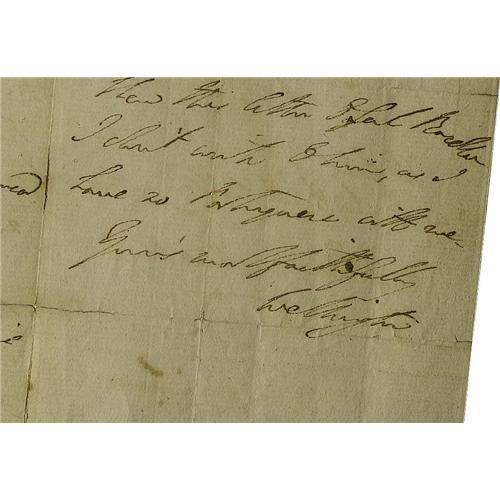 this letter
I don't write to him, as I
have no Portuguese with me
Yours most faithfully
Wellington